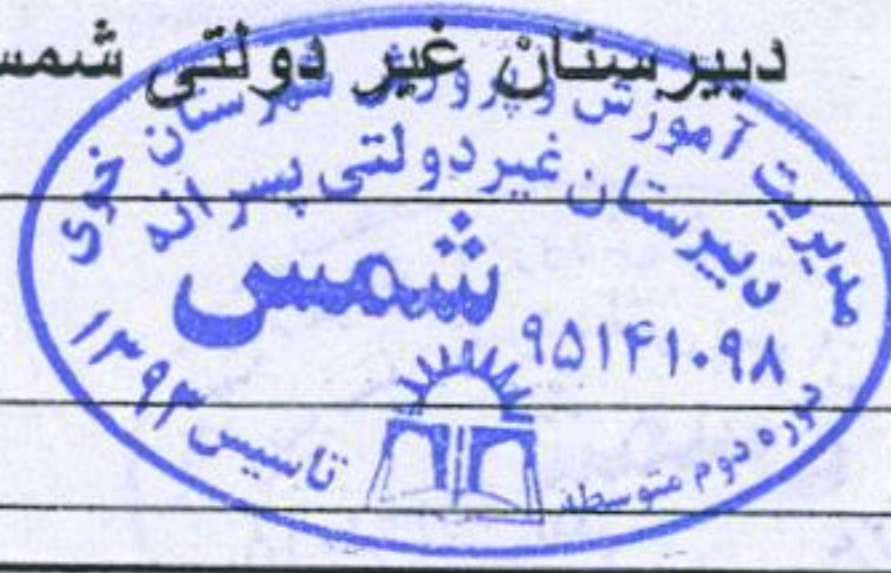 دبیرستان غیر دولتی شمس
مدیریت آموزش و پرورش شهرستان خوی
دبیرستان غیردولتی پسرانه
شمس
۹۵۱۴۱۰۹۸
تاسیس ۱۳۹۳
دوره دوم متوسطه